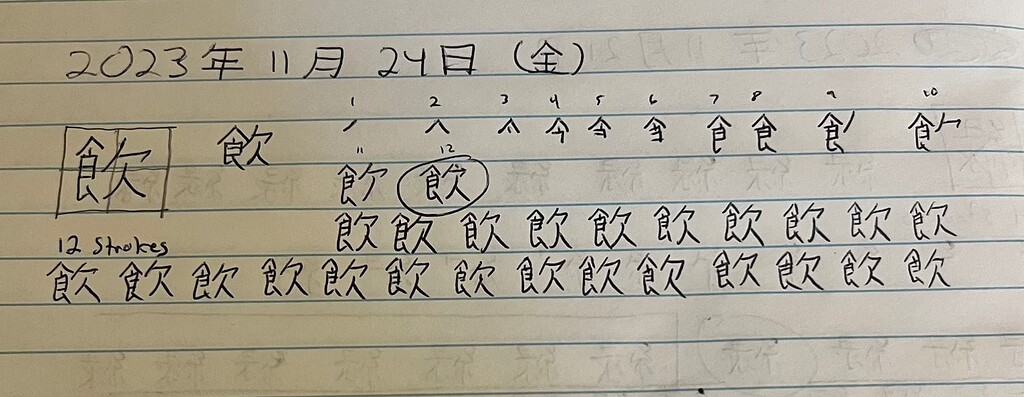 2023年 11月 24日 (金)
1 2 3 4 5 6 7 8 9 10
飲 飲
11 12
飲
飲 飲 飲 飲 飲 飲 飲 飲 飲 飲
12 strokes
飲 飲 飲 飲 飲 飲 飲 飲 飲 飲 飲 飲 飲 飲